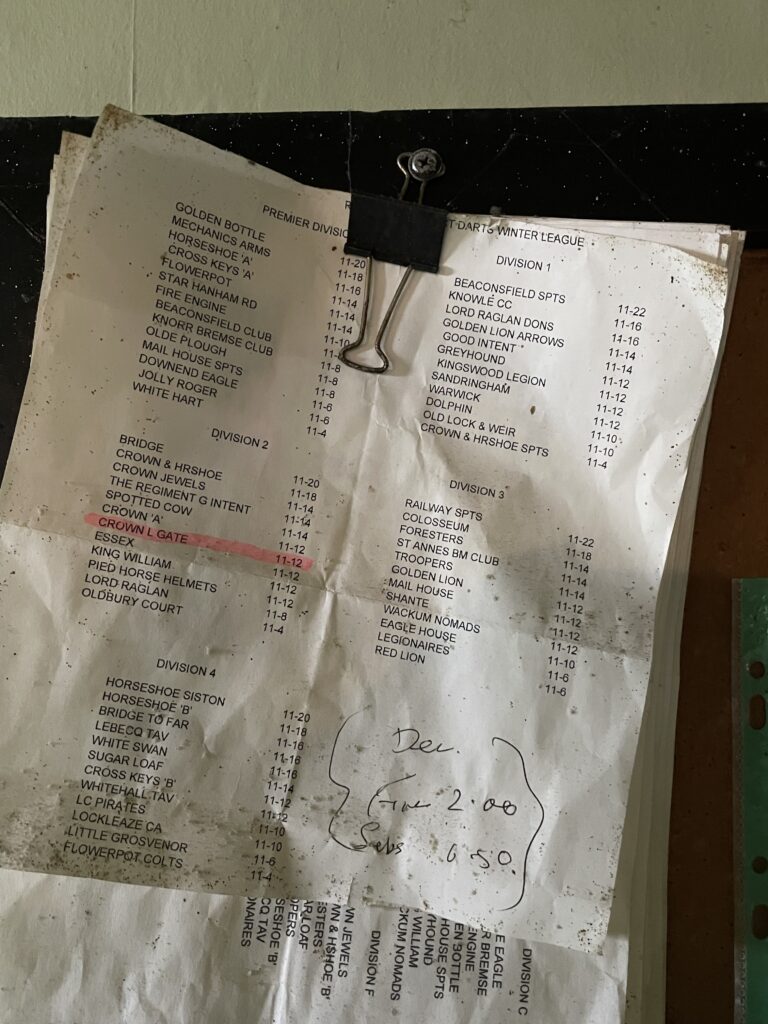 PREMIER DIVISIO
T DARTS WINTER LEAGUE
GOLDEN BOTTLE 11-20
MECHANICS ARMS 11-18
HORSESHOE 'A' 11-16
CROSS KEYS 'A' 11-14
FLOWERPOT 11-14
STAR HANHAM RD 11-14
FIRE ENGINE 11-10
BEACONSFIELD CLUB
KNORR BREMSE CLUB 11-8
OLDE PLOUGH 11-8
MAIL HOUSE SPTS 11-8
DOWNEND EAGLE 11-6
JOLLY ROGER 11-6
WHITE HART 11-4
DIVISION 1
BEACONSFIELD SPTS 11-22
KNOWLE CC 11-16
LORD RAGLAN DONS 11-16
GOLDEN LION ARROWS 11-14
GOOD INTENT 11-14
GREYHOUND 11-12
KINGSWOOD LEGION 11-12
SANDRINGHAM 11-12
WARWICK 11-12
DOLPHIN 11-10
OLD LOCK & WEIR 11-10
CROWN & HRSHOE SPTS 11-4
DIVISION 2
BRIDGE 11-20
CROWN & HRSHOE 11-18
CROWN JEWELS 11-14
THE REGIMENT G INTENT 11-14
SPOTTED COW 11-14
CROWN 'A' 11-12
CROWN L GATE 11-12
ESSEX 11-12
KING WILLIAM 11-12
PIED HORSE HELMETS 11-12
LORD RAGLAN 11-8
OLDBURY COURT 11-4
DIVISION 3
RAILWAY SPTS 11-22
COLOSSEUM 11-18
FORESTERS 11-14
ST ANNES BM CLUB 11-14
TROOPERS 11-14
GOLDEN LION 11-12
MAIL HOUSE 11-12
SHANTE 11-12
WACKUM NOMADS 11-12
EAGLE HOUSE 11-10
LEGIONAIRES 11-6
RED LION 11-6
DIVISION 4
HORSESHOE SISTON 11-20
HORSESHOE 'B' 11-18
BRIDGE TO FAR 11-16
LEBECQ TAV 11-16
WHITE SWAN 11-16
SUGAR LOAF 11-14
CROSS KEYS 'B' 11-12
WHITEHALL TAV 11-12
LC PIRATES 11-10
LOCKLEAZE CA 11-10
LITTLE GROSVENOR 11-6
FLOWERPOT COLTS 11-4
Dec.
2.00
Subs 6.50.
DIVISION C
E EAGLE
R BREMSE
ENGINE
EN BOTTLE
HOUSE SPTS
YHOUND
WILLIAM
CKUM NOMADS
DIVISION F
WN JEWELS
WN & HSHOE 'B'
ESTERS
AR LOAF
OPERS
SESHOE 'B'
CQ TAV
ONAIRES